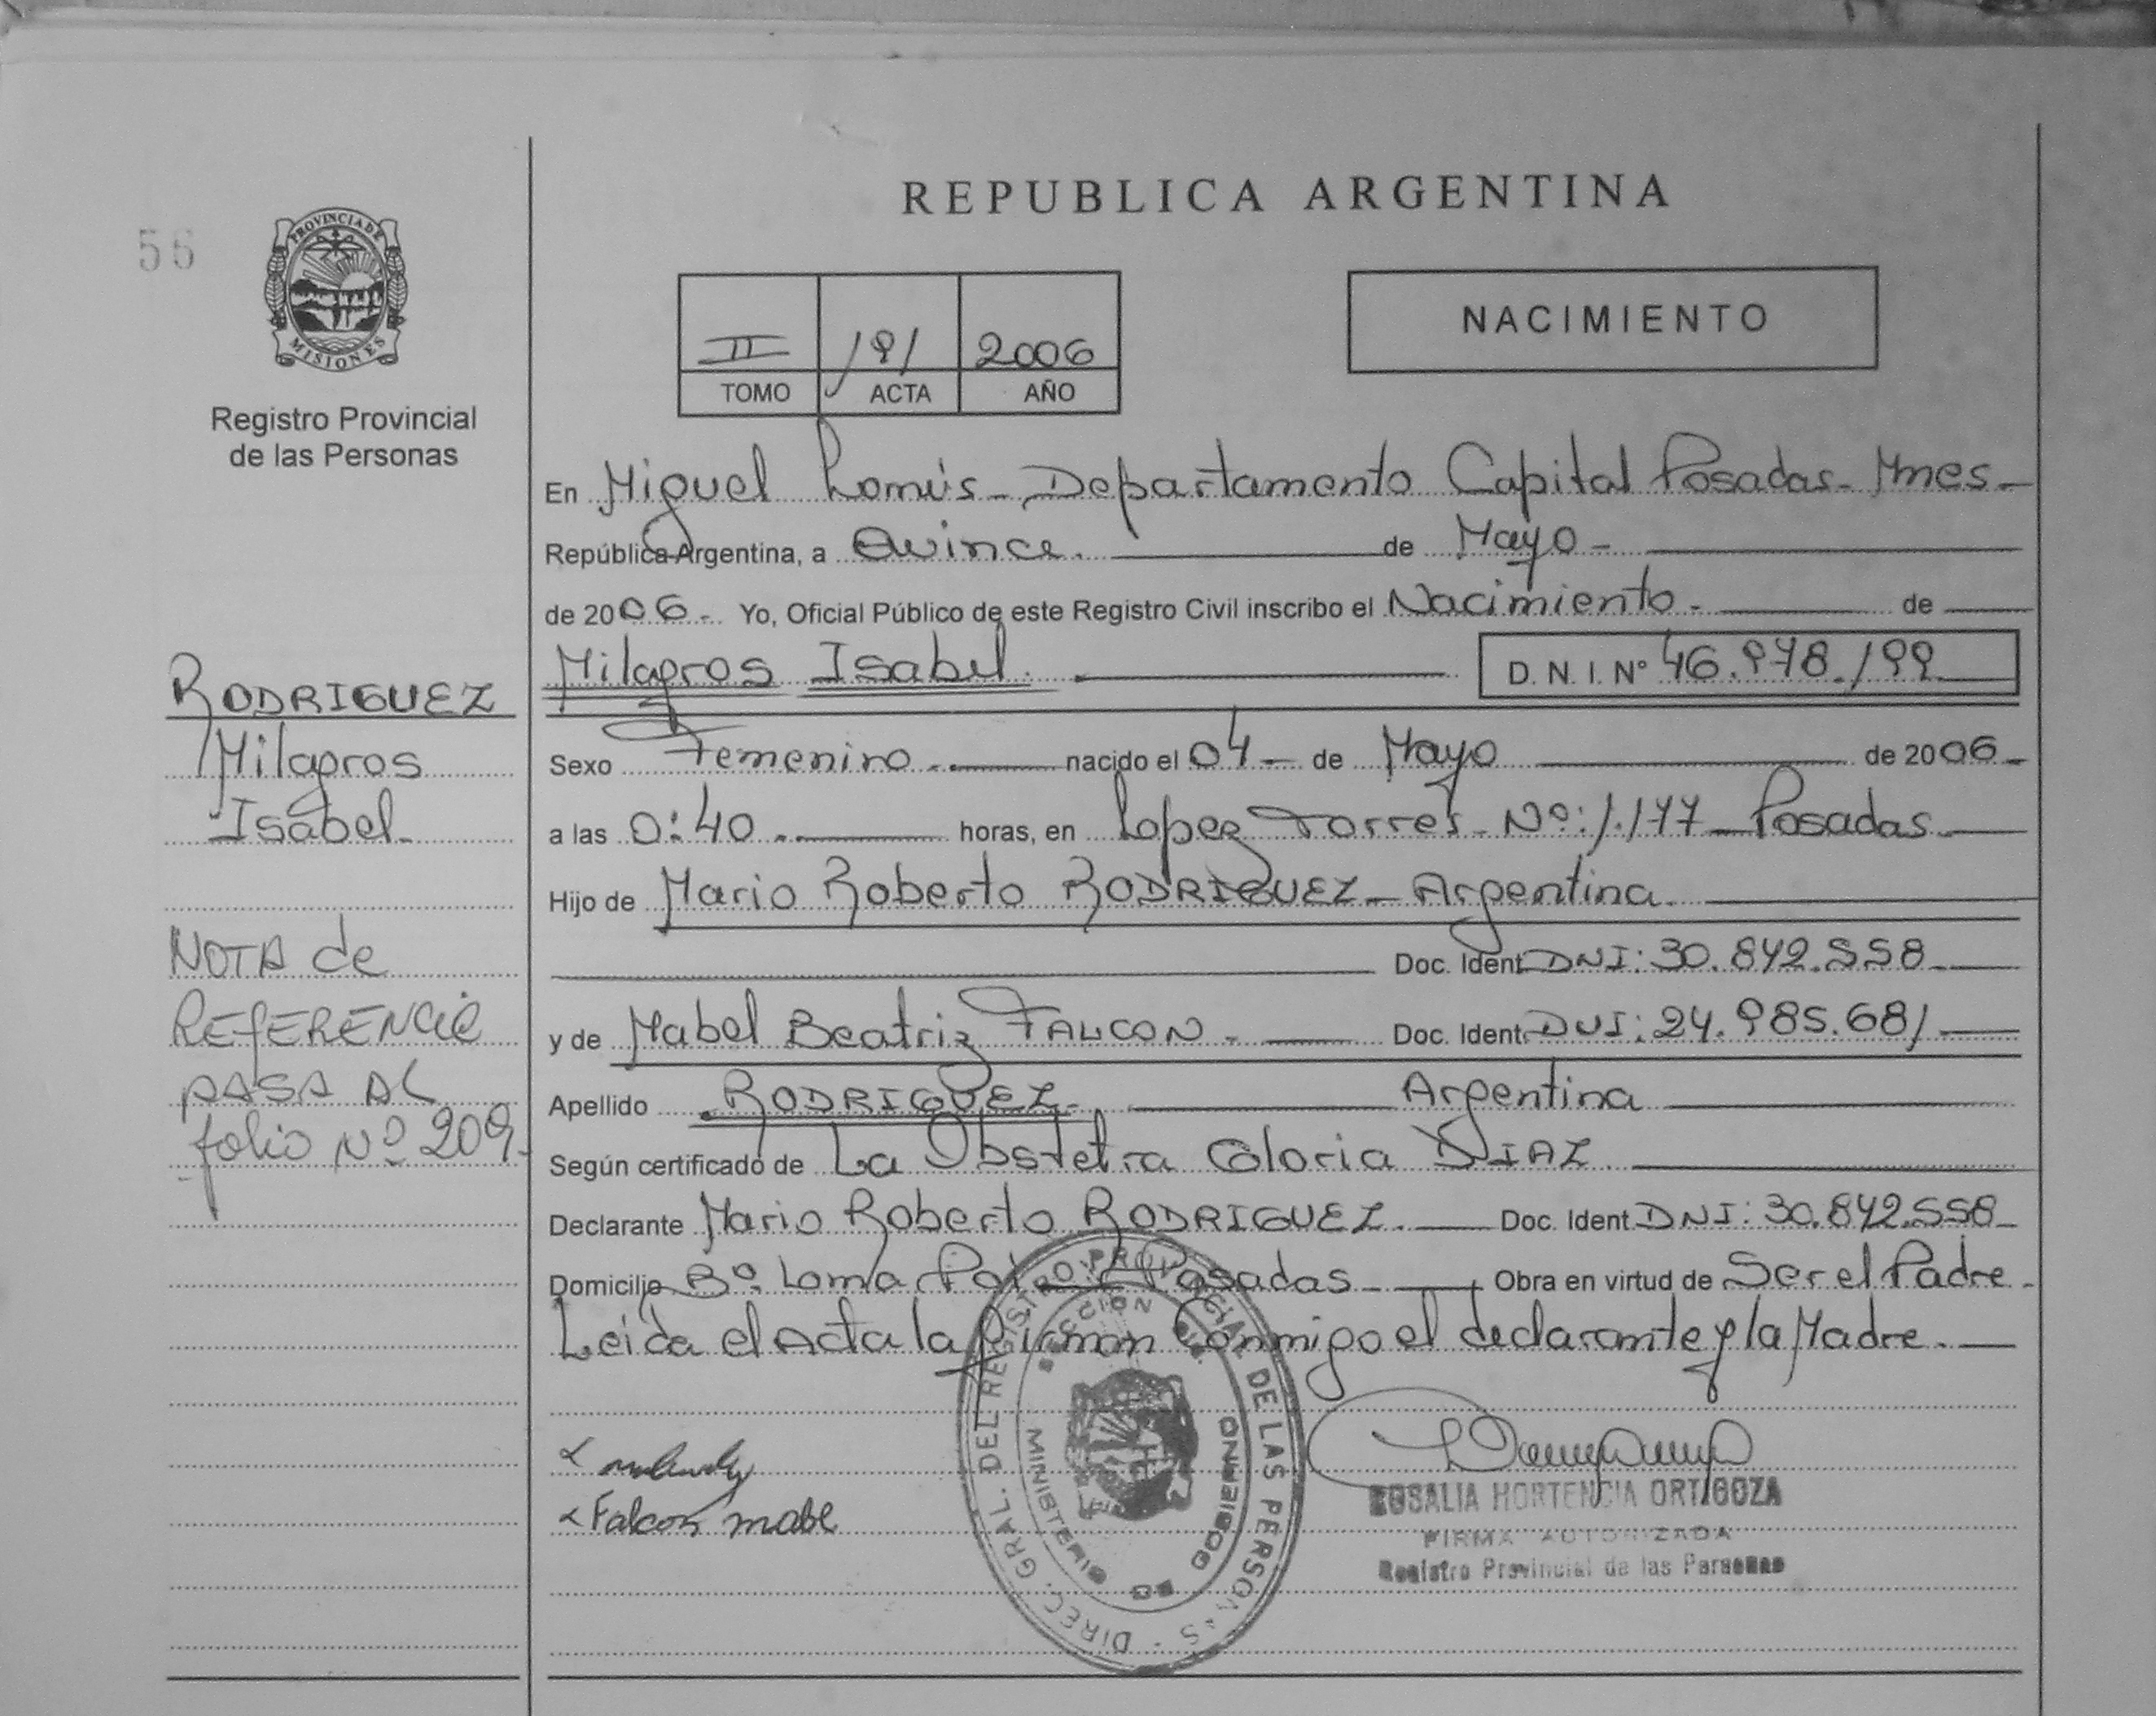 56
PROVINCIA DE
MISIONES
Registro Provincial
de las Personas
REPUBLICA ARGENTINA
II 191 2006
TOMO ACTA AÑO
NACIMIENTO
En Miguel Lanús - Departamento Capital Posadas - Mnes -
República Argentina, a Quince. de Mayo -
de 2006 - Yo, Oficial Público de este Registro Civil inscribo el Nacimiento - de
Milagros Isabel. D. N. I. Nº 46.978.199
Sexo Femenino. nacido el 04 - de Mayo de 2006 -
a las 0:40. horas, en Lopez Torres - Nº: 1.177 - Posadas
Hijo de Mario Roberto RODRIGUEZ - Argentina.
Doc. Ident. DNI: 30.842.558
y de Mabel Beatriz FALCON. - Doc. Ident. DNI: 24.985.681
Apellido RODRIGUEZ - Argentina
Según certificado de La Obstetra Gloria DIAZ
Declarante Mario Roberto RODRIGUEZ. Doc. Ident DNI: 30.842.558
Domicilio Bº. Loma Posadas Obra en virtud de Ser el Padre -
Leida el Acta la firman Conmigo el declarante y la Madre.
RODRIGUEZ
Milagros
Isabel -
NOTA de
REFERENCIA
PASA AL
folio Nº 209 -
Falcon mabel
DIREC. GRAL. DEL REGISTRO PROVINCIAL DE LAS PERSONAS
MINISTERIO DE GOBIERNO
ROSALIA HORTENCIA ORTIGOZA
FIRMA AUTORIZADA
Registro Provincial de las Personas